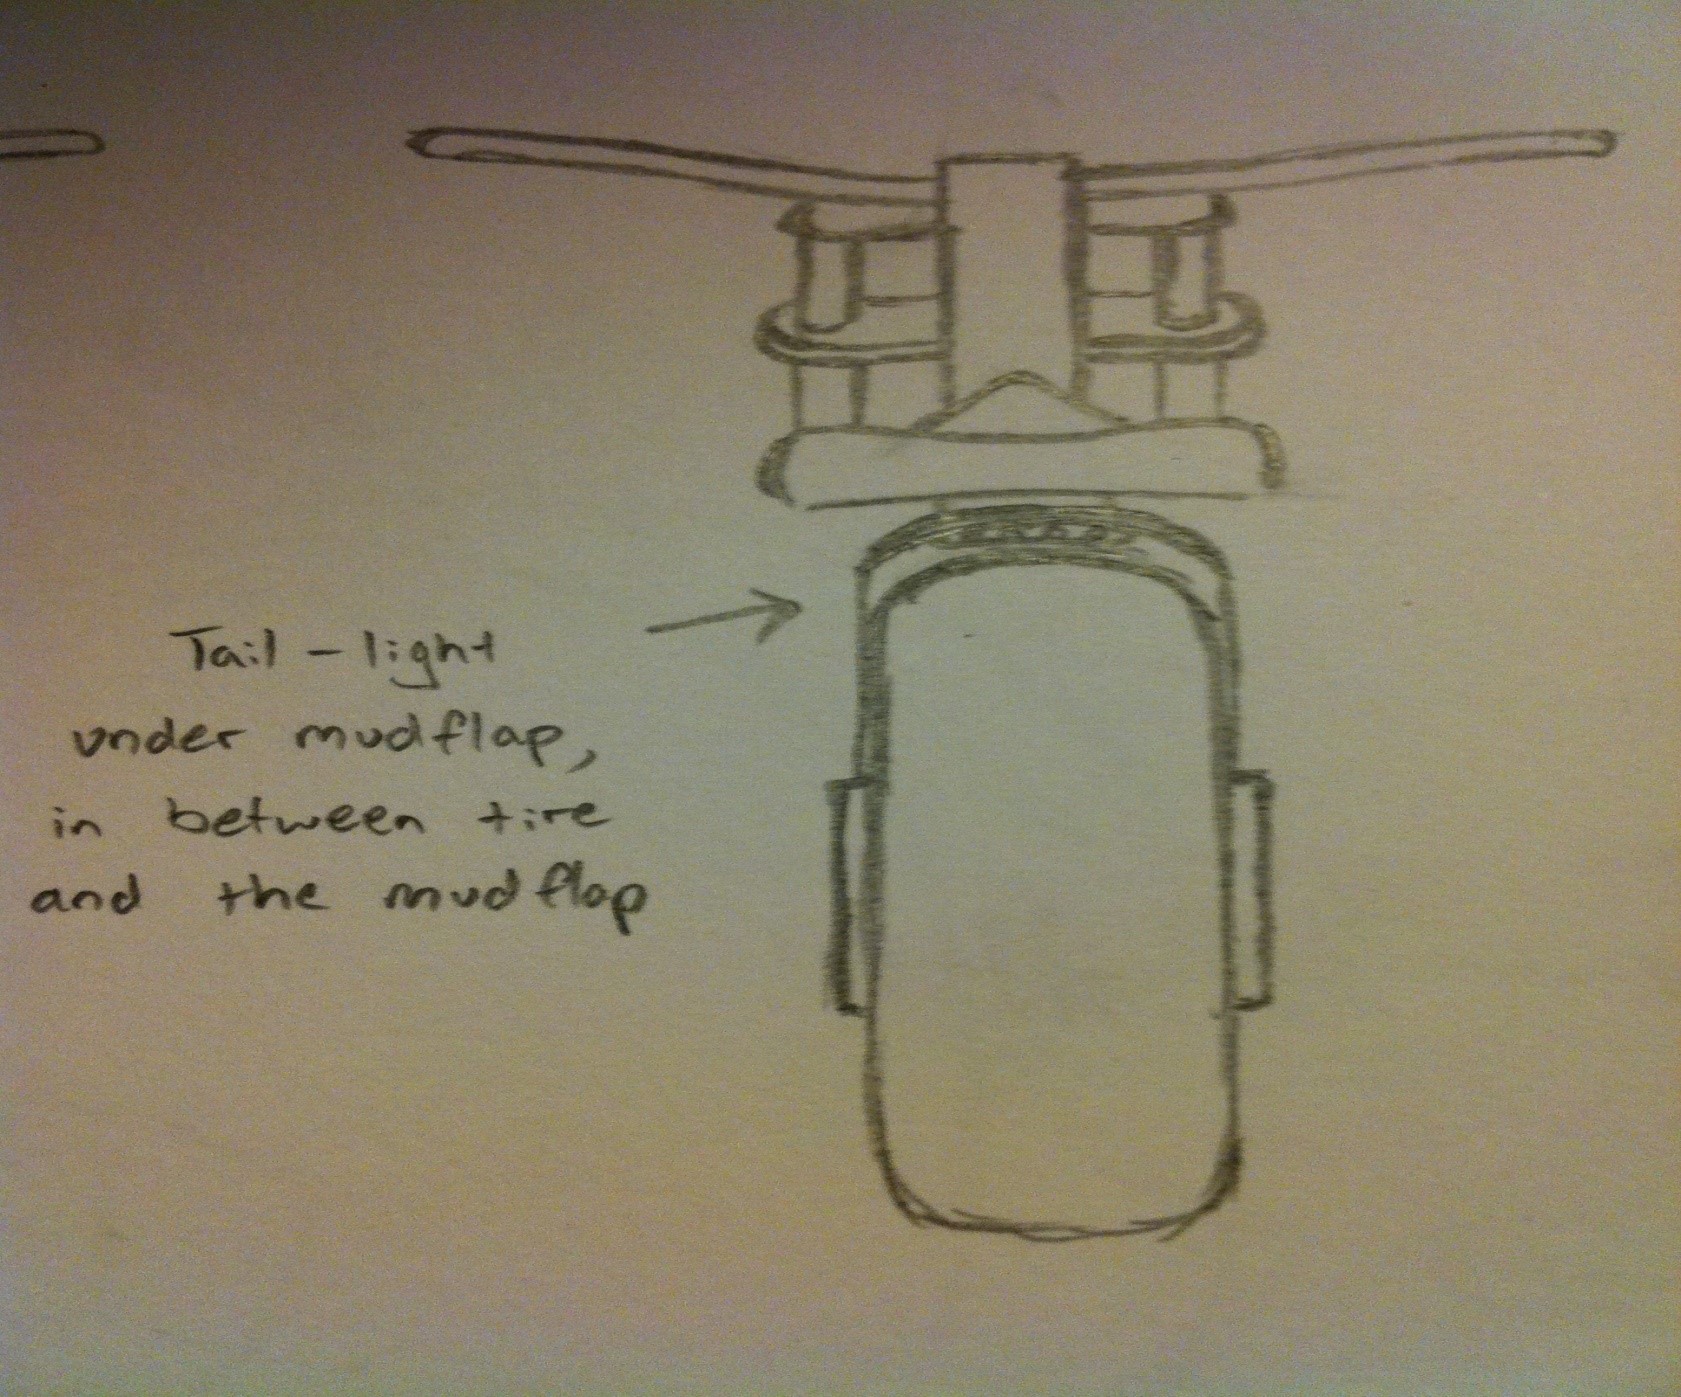 Tail - light
under mudflap,
in between tire
and the mudflap